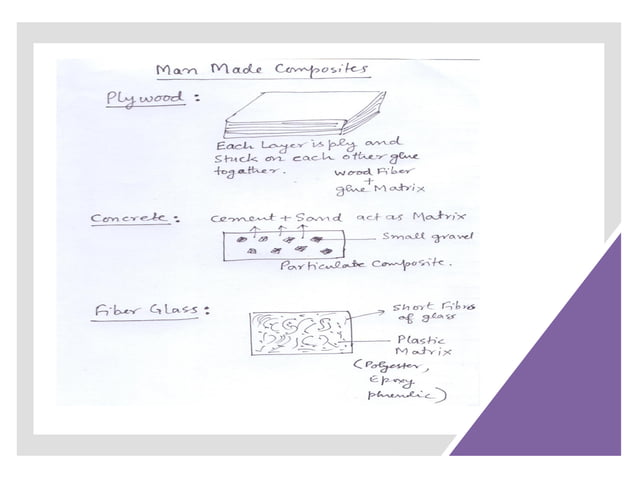 Man Made Composites
Plywood :
Each Layer is ply and
stuck on each other glue
together.
wood Fiber
+
glue Matrix
Concrete : Cement + Sand act as Matrix
Small gravel
Particulate Composite.
Fiber Glass :
Short Fibres
of glass
Plastic
Matrix
(Polyester,
Epoxy
phrendic)